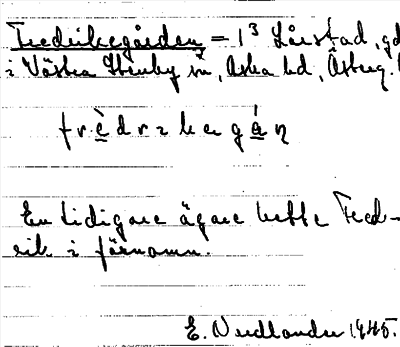 Fredriksgården = 1³ Lårstad, gd
i Västra Stenby sn, Aska hd, Österg.
En tidigare ägare hette Fred-
rik i förnamn.
E. Nordlander 1945.